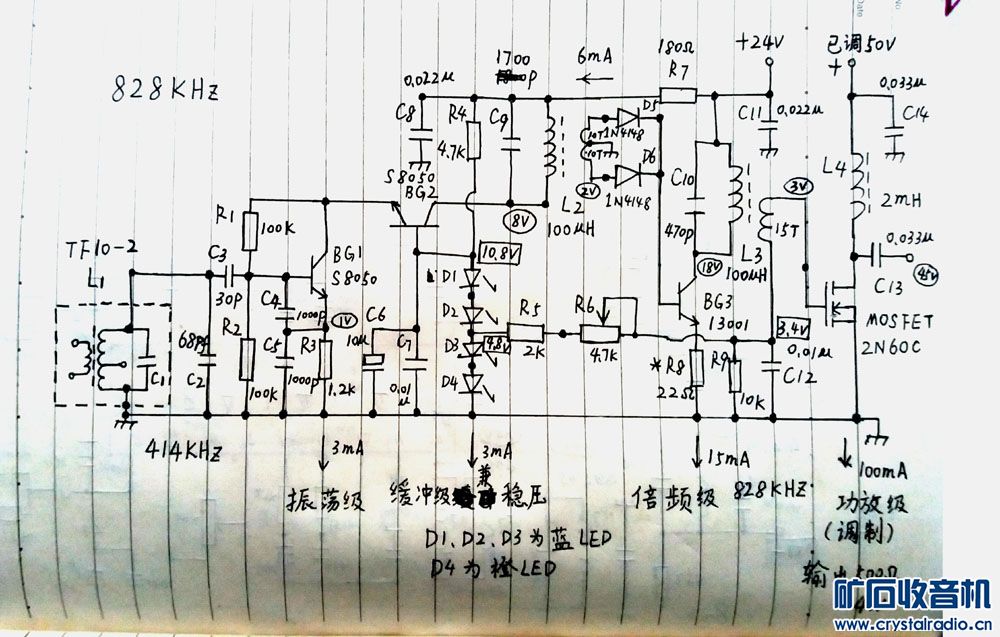 828KHz
+24V
已调50V
+
180Ω
R7
6mA
1700
0.022μ
C8
R4
4.7K
C9
D5
1N4148
10T
10T
D6
1N4148
2V
L2
100μH
C10
470p
C11
0.022μ
0.033μ
C14
L4
2mH
3V
15T
L3
100μH
18V
S8050
BG2
8V
10.8V
R1
100K
BG1
S8050
TF10-2
L1
C3
30P
C4
1000p
1V
C6
10μ
C7
0.01
μ
D1
D2
D3
D4
4.8V
R5
2K
R6
4.7K
BG3
13001
0.033μ
C13
45V
MOSFET
2N60C
3.4V
0.01μ
C12
C1
68P
C2
R2
100K
C5
1000p
R3
1.2K
*R8
22Ω
R9
10K
414KHz
3mA
3mA
15mA
100mA
振荡级
缓冲级
兼
稳压
倍频级 828KHz
功放级
(调制)
D1、D2、D3为蓝LED
D4为橙LED
输出500Ω
矿石收音机
www.crystalradio.cn